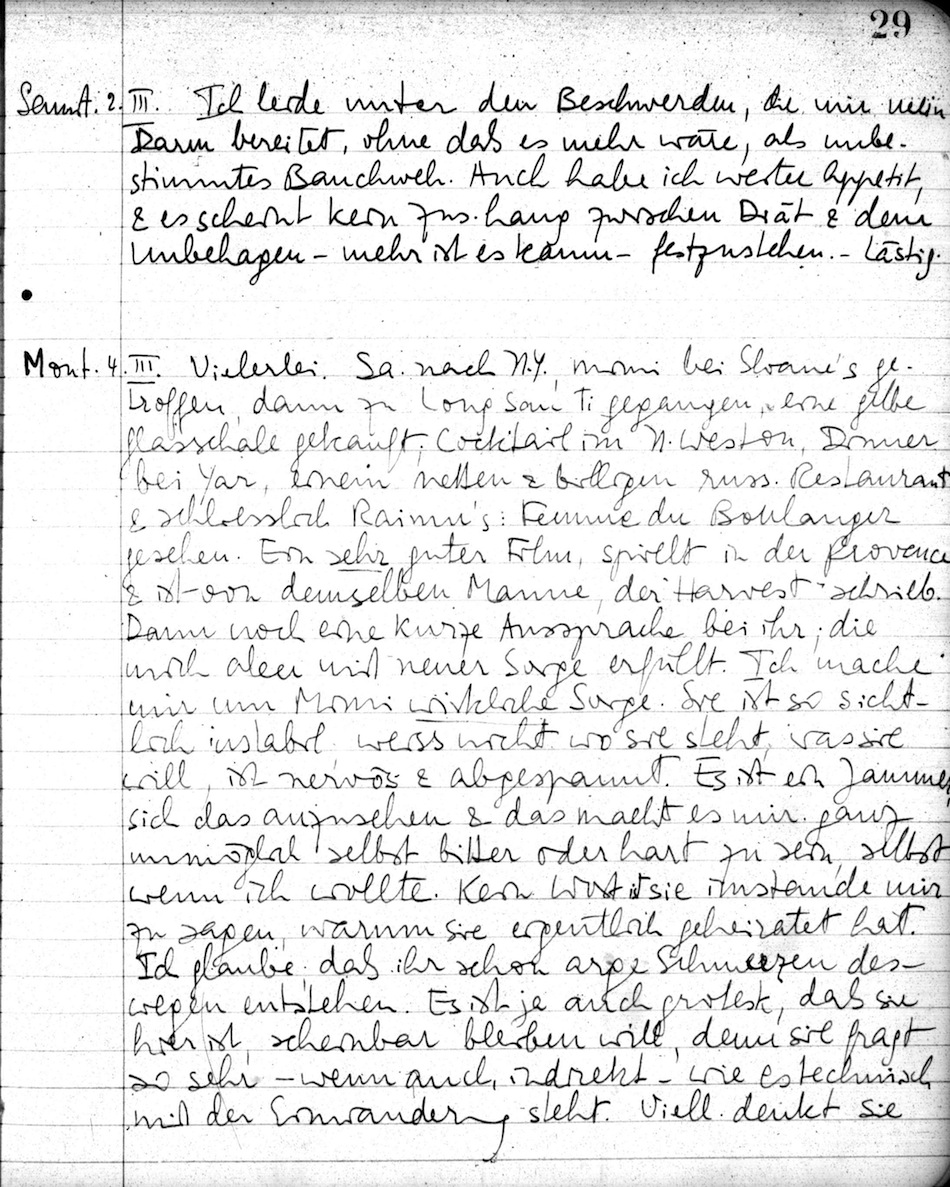 29
Samst. 2. III. Ich leide unter den Beschwerden, die mir mein
Darm bereitet, ohne daß es mehr wäre, als unbe-
stimmtes Bauchweh. Auch habe ich weiter Appetit,
& es scheint kein Zus.hang zwischen Diät & dem
Unbehagen – mehr ist es kaum – festzustehen. – Lästig.
Mont. 4. III. Vielerlei. Sa. nach N.Y., Momi bei Sloane's ge-
troffen, dann zu Long gegangen, eine gelbe
Glasschale gekauft; Cocktail im N. Weston, Dinner
bei Yar, einem netten & billigen russ. Restaurant
& schliesslich Raimu's: Femme du Boulanger
gesehen. Ein sehr guter Film, spielt in der Provence
& ist von demselben Manne, der Harvest schrieb.
Dann noch eine kurze Aussprache bei ihr, die
mich aber mit neuer Sorge erfüllt. Ich mache
mir um Momi wirkliche Sorge. Sie ist so sicht-
lich instabil, weiss nicht wo sie steht, was sie
will, ist nervös & abgespannt. Es ist ein Jammer
sich das anzusehen & das macht es mir ganz
unmöglich selbst bitter oder hart zu sein, selbst
wenn ich wollte. Kein ist sie imstande mir
zu sagen, warum sie eigentlich geheiratet hat.
Ich glaube, daß ihr schon arge Schmerzen des-
wegen entstehen. Es ist je auch grotesk, daß sie
hier ist, scheinbar bleiben will, denn sie fragt
so sehr – wenn auch indirekt – wie es technisch
mit der Einwanderg steht. Viell. denkt sie